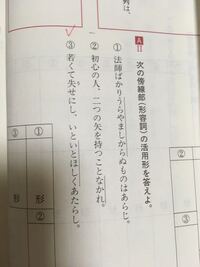 列は、
A
次の傍線部（形容詞）の活用形を答えよ。
① 法師ばかりうらやましからぬものはあらじ。
② 初心の人、二つの矢を持つことなかれ。
③ 若くて失せにし、いといとほしくあたらし。
①
形
②
③
形
②
③